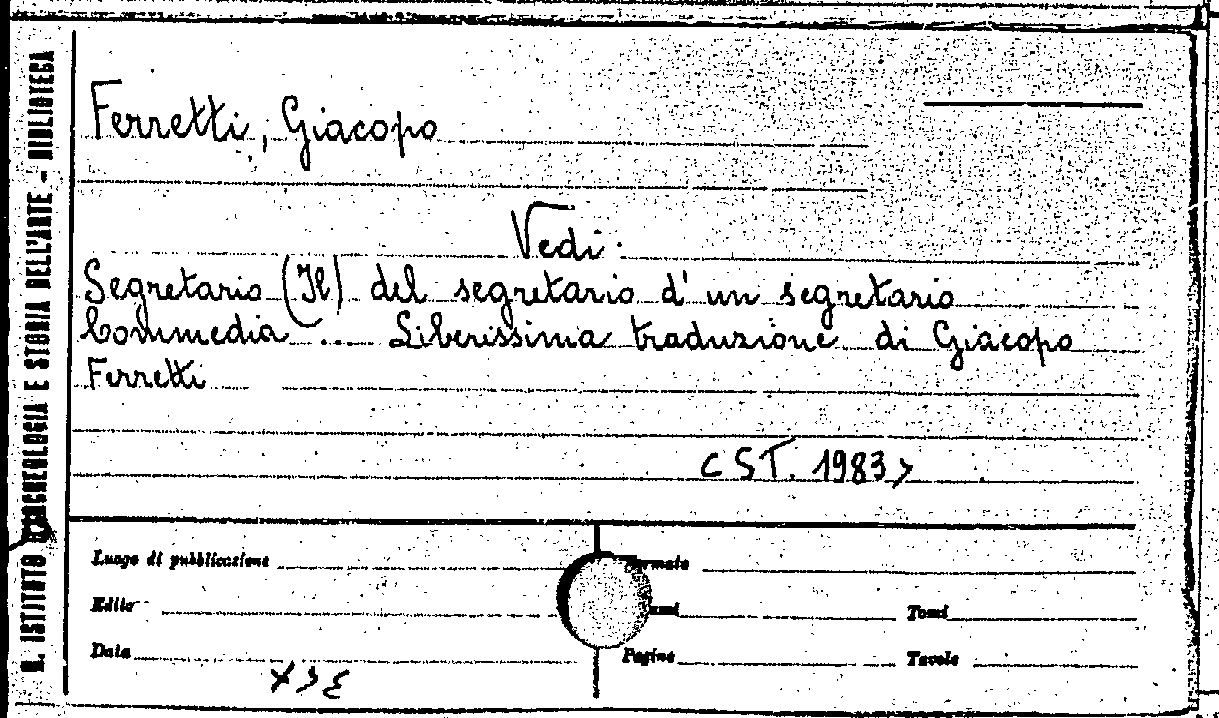 R. ISTITUTO D'ARCHEOLOGIA E STORIA DELL'ARTE - BIBLIOTECA
Ferretti, Giacopo
Vedi:
Segretario (Il) del segretario d'un segretario
Commedia .... Liberissima traduzione di Giacopo
Ferretti
<ST. 1983>
Luogo di pubblicazione
Formato
Edito
Tomi
Data
Pagine
Tavole